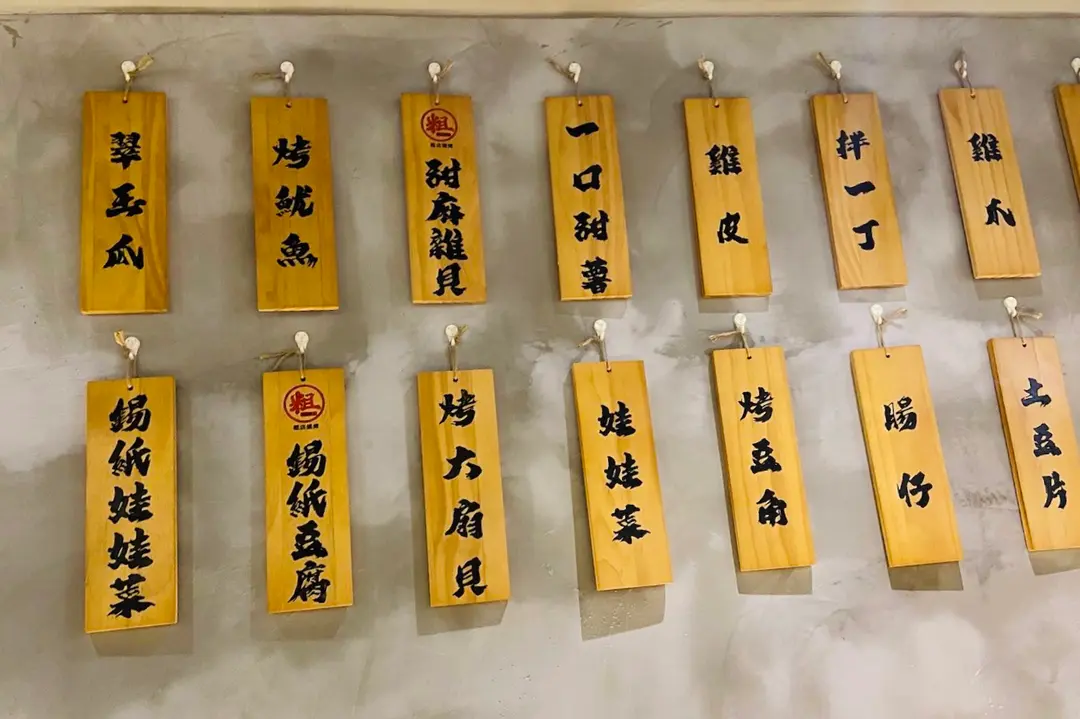 翠玉瓜
烤魷魚
粗
甜麻雜貝
一口甜薯
雞皮
拌一丁
雞爪
錫紙娃娃菜
粗
錫紙豆腐
烤大扇貝
娃娃菜
烤豆角
腸仔
土豆片